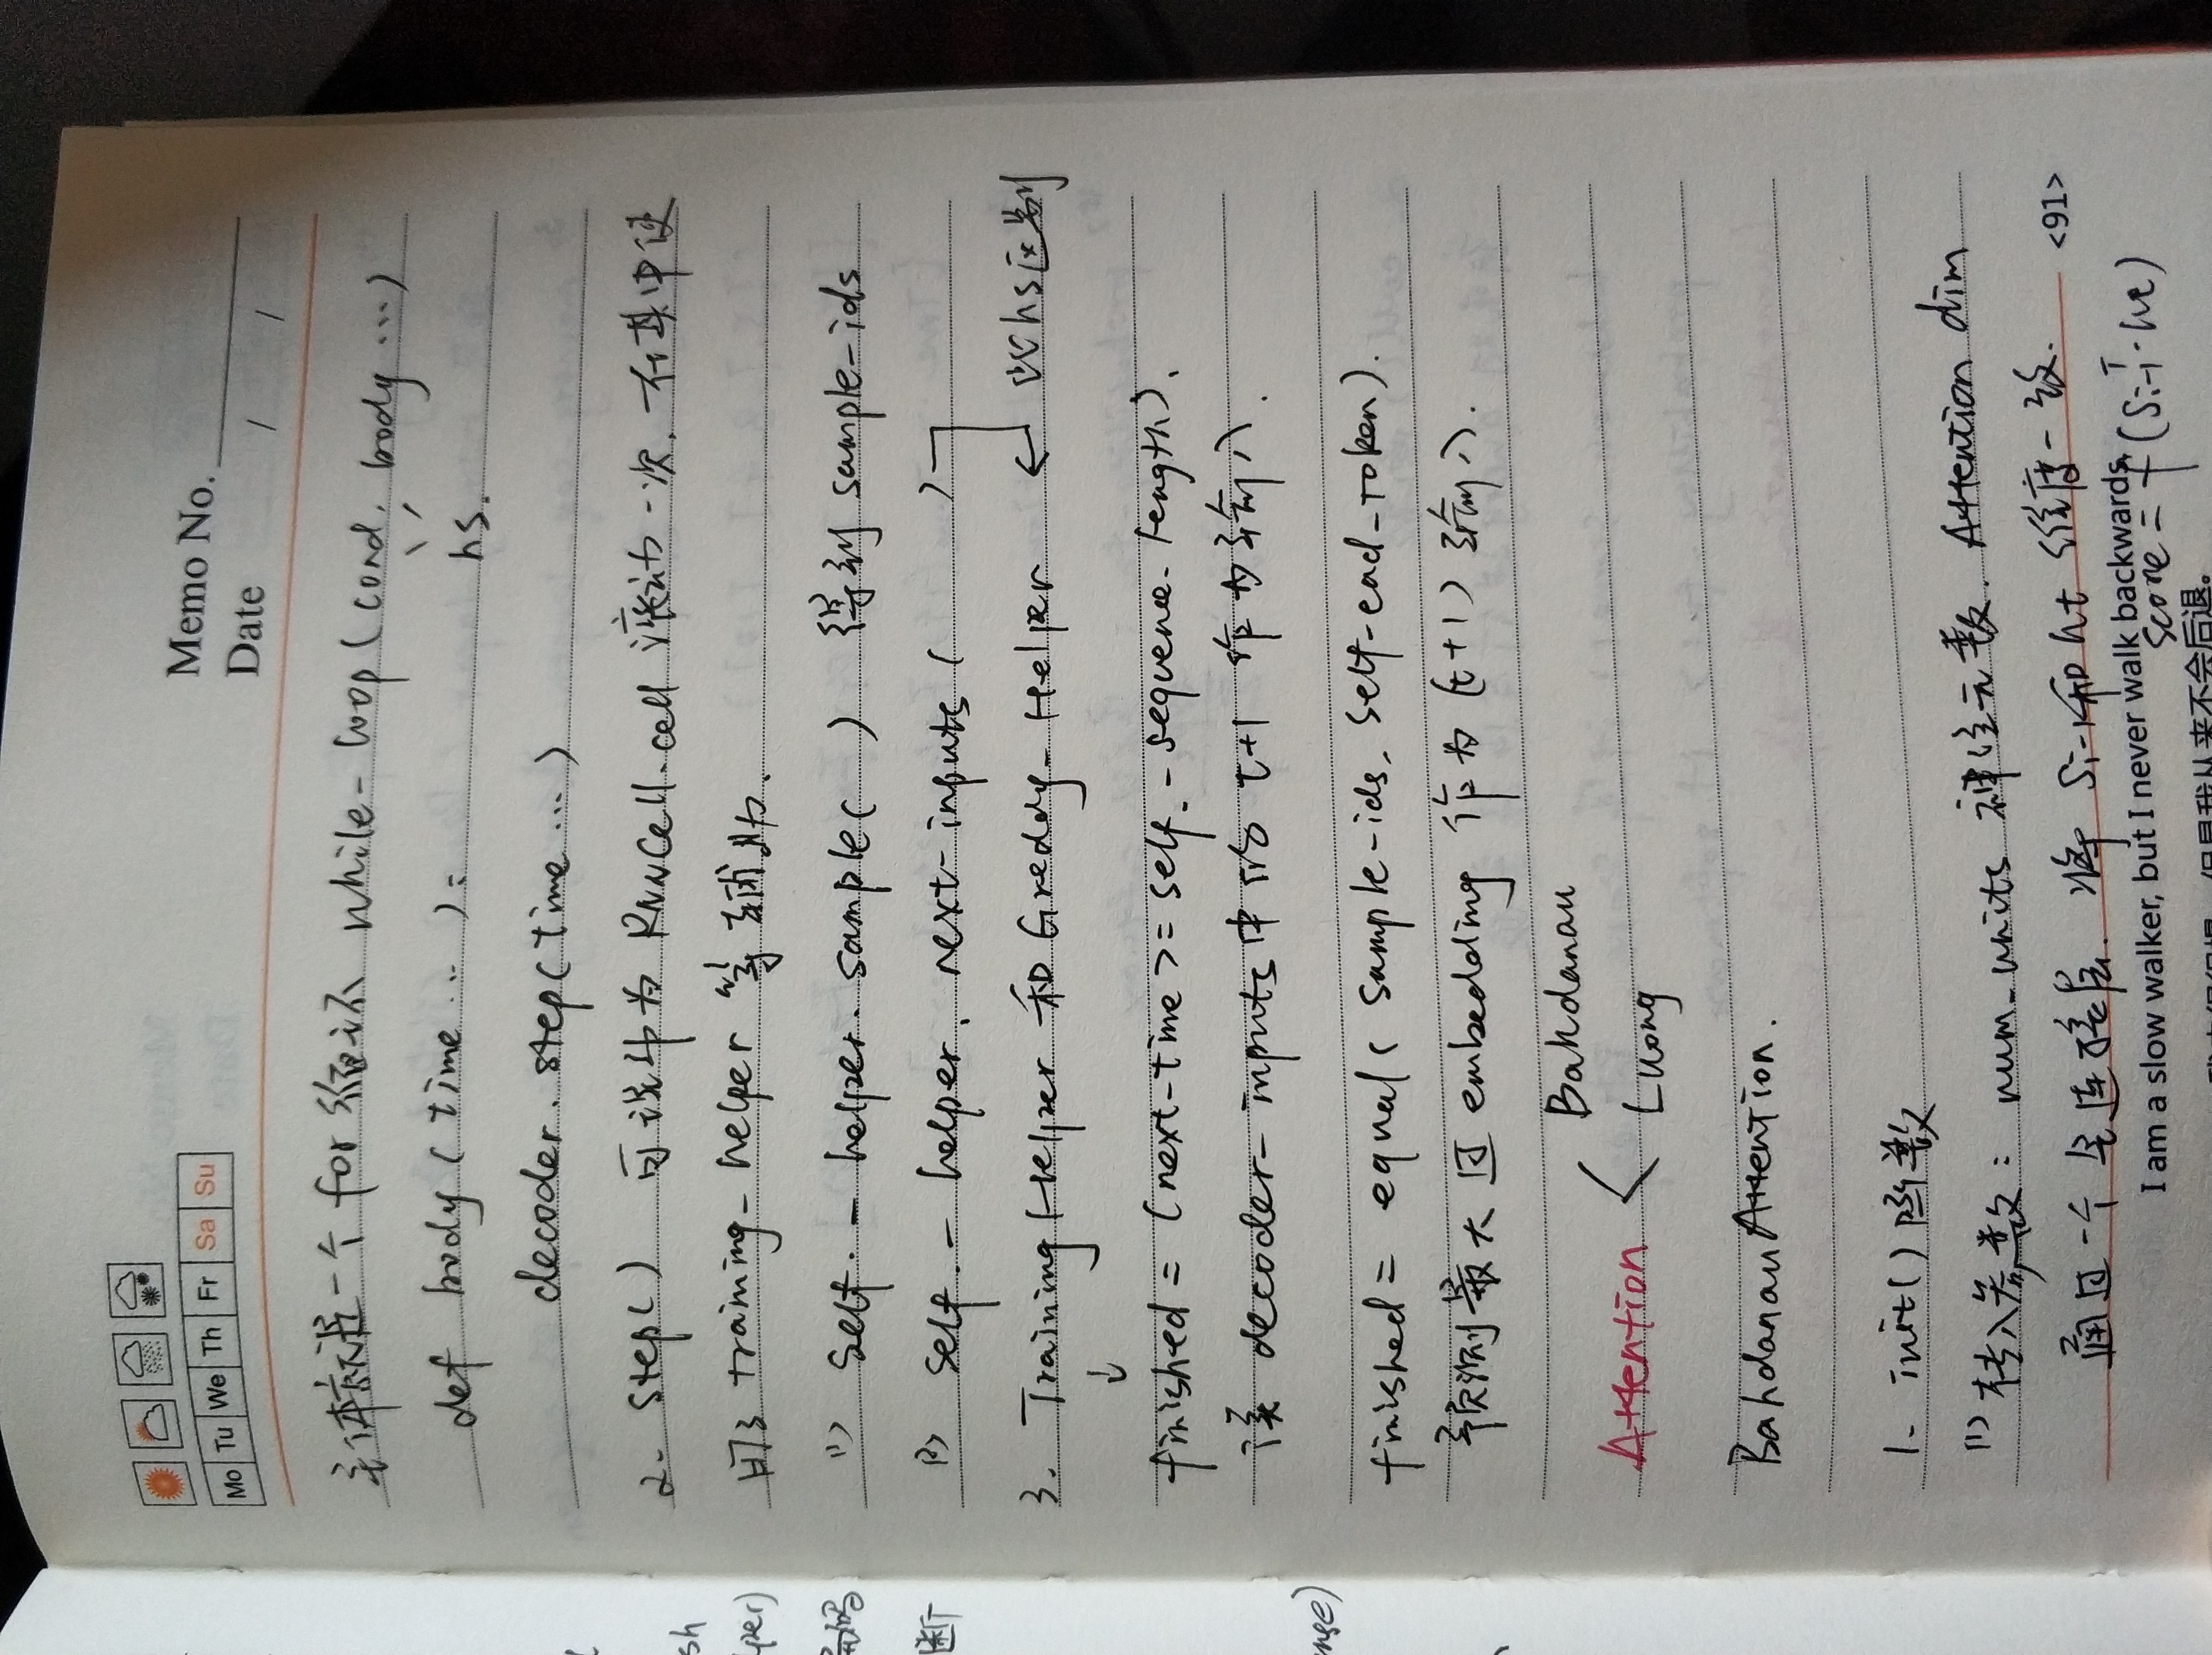 Mo Tu We Th Fr Sa Su
Memo No.
Date / /
主体就是一个 for 循环 while-loop(cond, body ...)
hs.
def body (time ... ):
decoder. step(time ...)
2. step() 可说即为 RNNCell.cell 滚动一次, 在其中使
用了 training_helper 等辅助.
(1) self. _ helper. sample( ) 得到 sample-ids
(2) self. _ helper. next-inputs ( )
3. Training Helper 和 Greddy_ Helper ← 以hs区别
↓
finished = (next-time >= self. _ sequence. length).
该 decoder_ inputs 中的 t+1 作为输入.
finished = equal( sample-ids, self-end_token).
预测最大过 embedding 作为 (t+1) 输入.
Attention < Bahdanau
Luong
Bahdanau Attention.
1. init() 函数
(1) 传入参数: num_units 神经元数. Attention dim
通过一个全连接层. 将 Si-1和ht 维度一致.
<91>
I am a slow walker, but I never walk backwards.
score = f(Si-1ᵀ·ht)
但是我从来不会后退。
sh
per)
进行
nge)